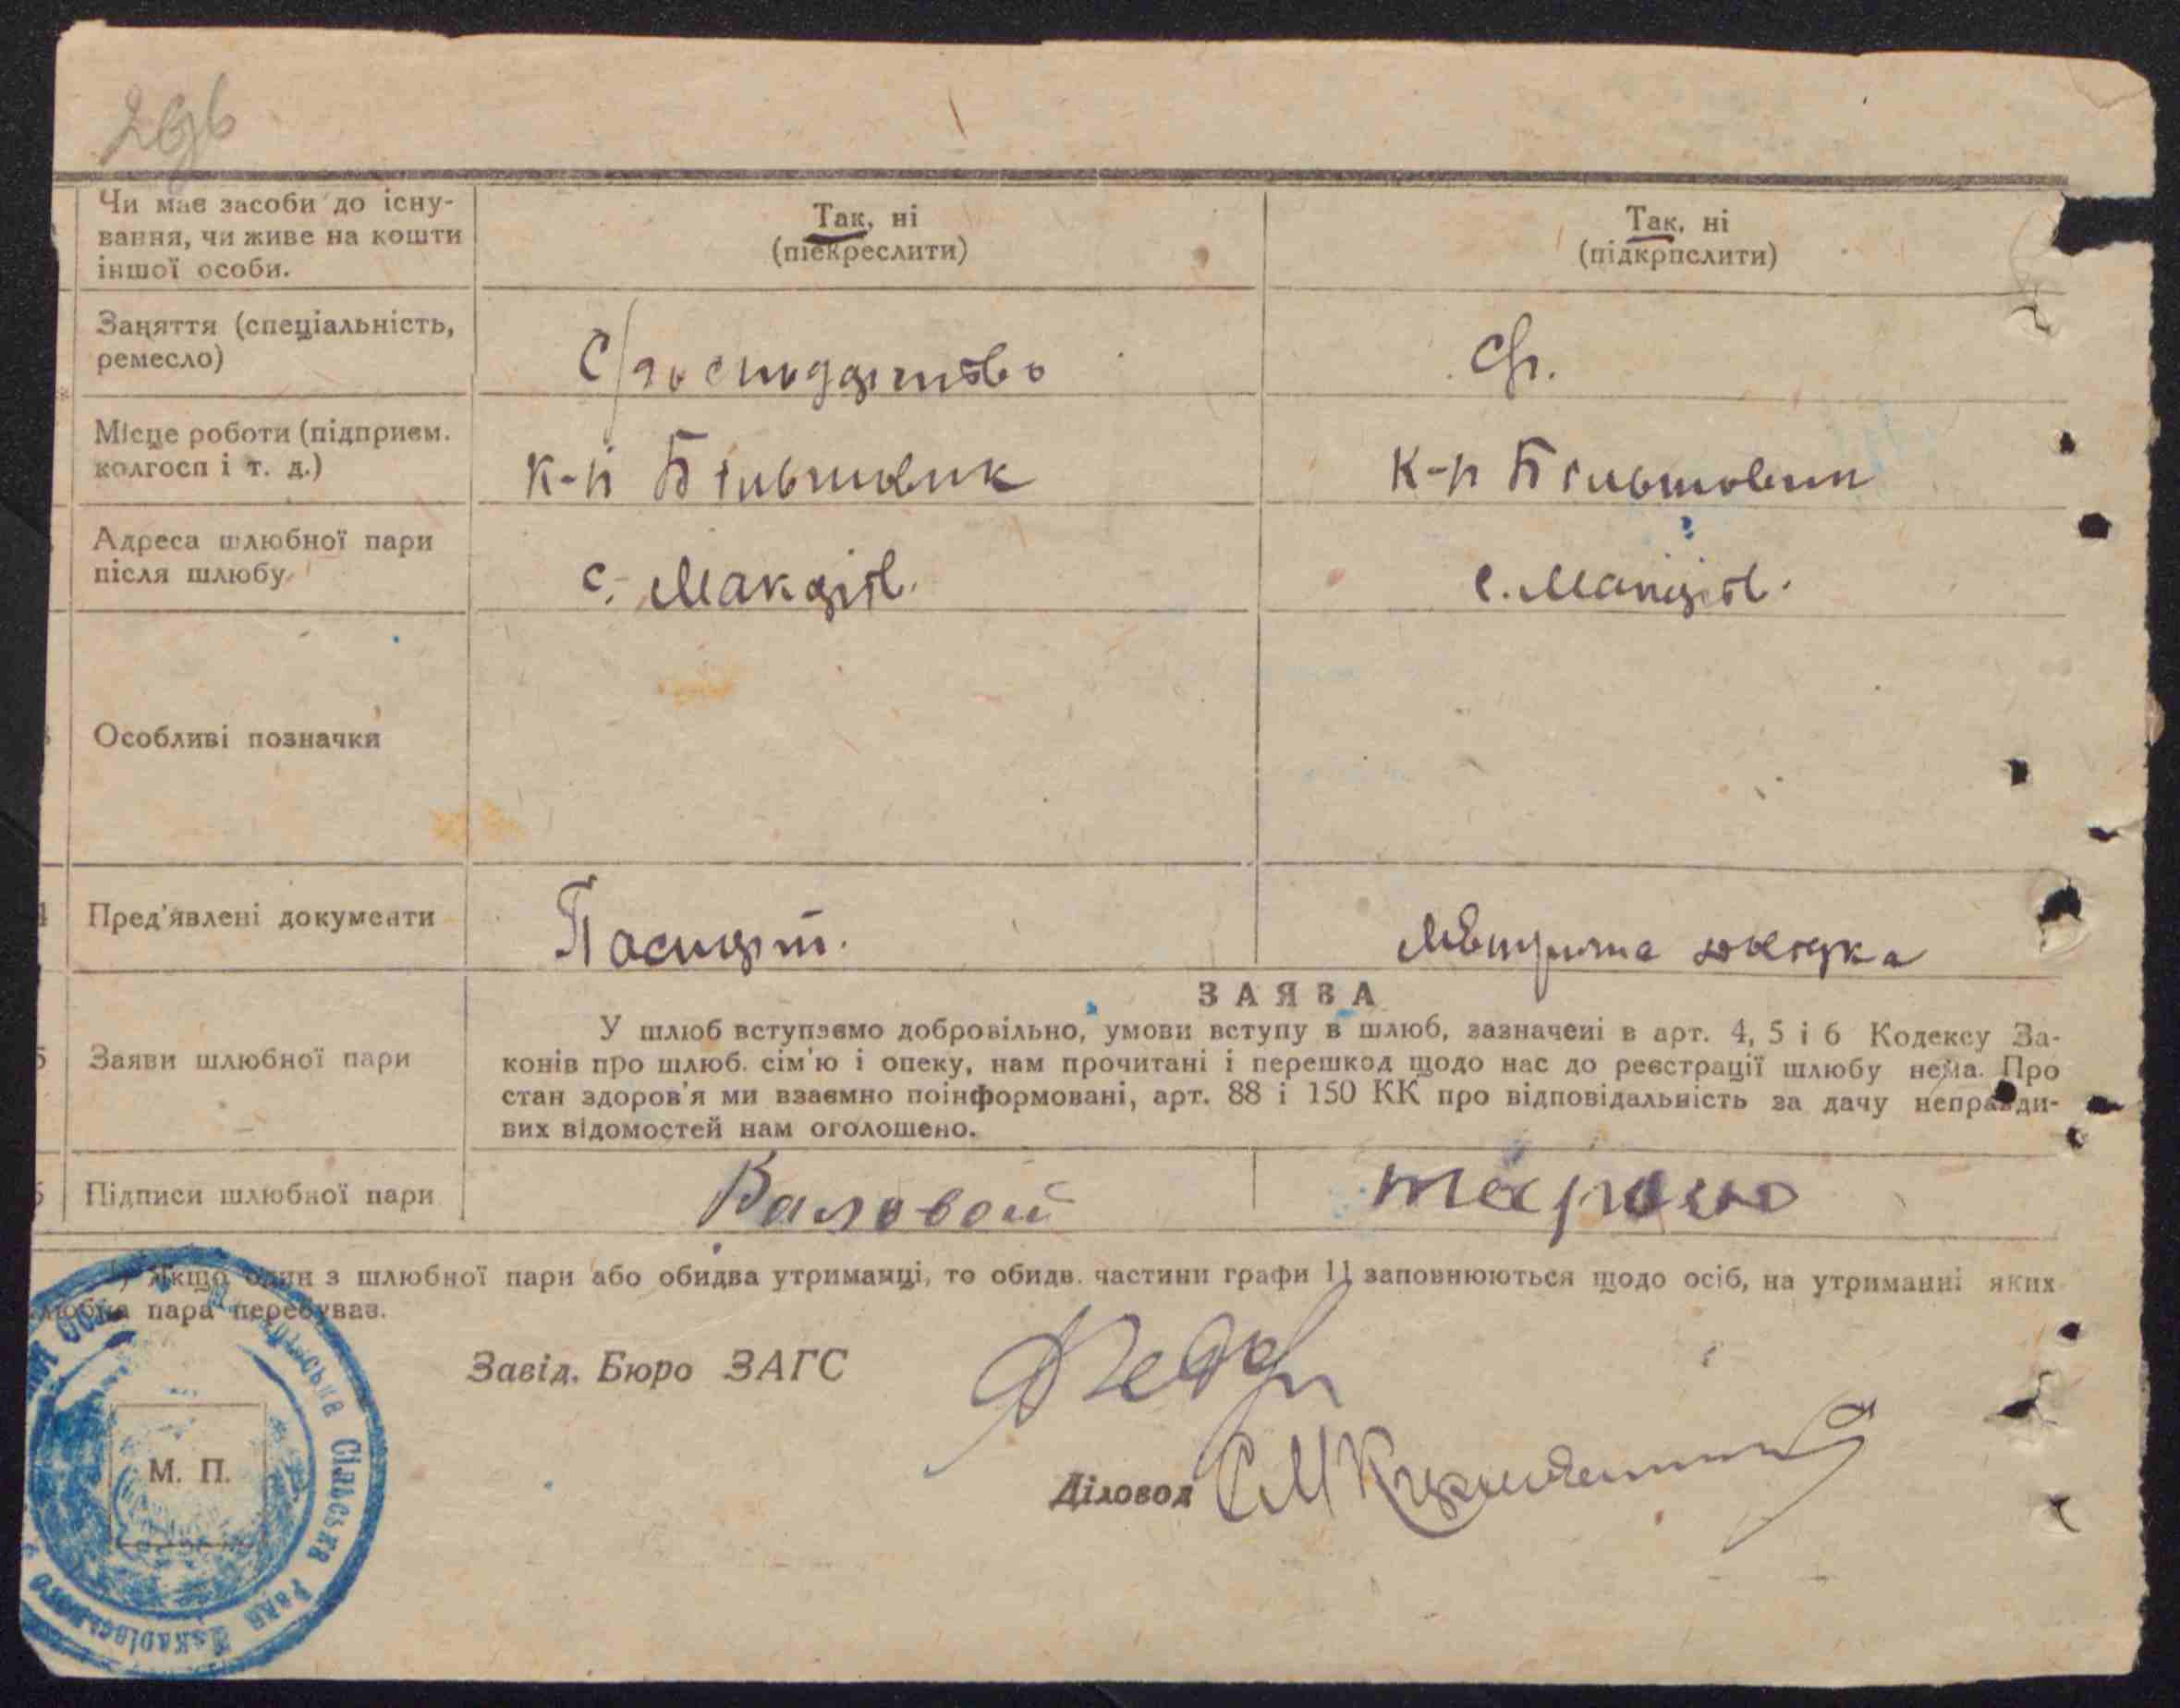 Чи має засоби до існу-
вання, чи живе на кошти
іншої особи.
Так, ні
(піекреслити)
Так, ні
(підкрпслити)
Заняття (спеціальність,
ремесло)
С/господарство
С/г.
Місце роботи (підприєм.
колгосп і т. д.)
к-п Більшовик
к-п Більшовик
Адреса шлюбної пари
після шлюбу
с. Макарів.
с. Макарів.
Особливі позначки
Пред'явлені документи
Паспорт.
Заяви шлюбної пари
ЗАЯВА
У шлюб вступаємо добровільно, умови вступу в шлюб, зазначені в арт. 4, 5 і 6 Кодексу За-
конів про шлюб. сім'ю і опеку, нам прочитані і перешкод щодо нас до реєстрації шлюбу нема. Про
стан здоров'я ми взаємно поінформовані, арт. 88 і 150 КК про відповідальність за дачу неправди-
вих відомостей нам оголошено.
Підписи шлюбної пари
Валовой
¹) Якщо один з шлюбної пари або обидва утриманці, то обидв. частини графи 11 заповнюються щодо осіб, на утриманні яких
шлюбна пара перебуває.
Завід. Бюро ЗАГС
М. П.
Діловод
Сільська Рада Макарівського